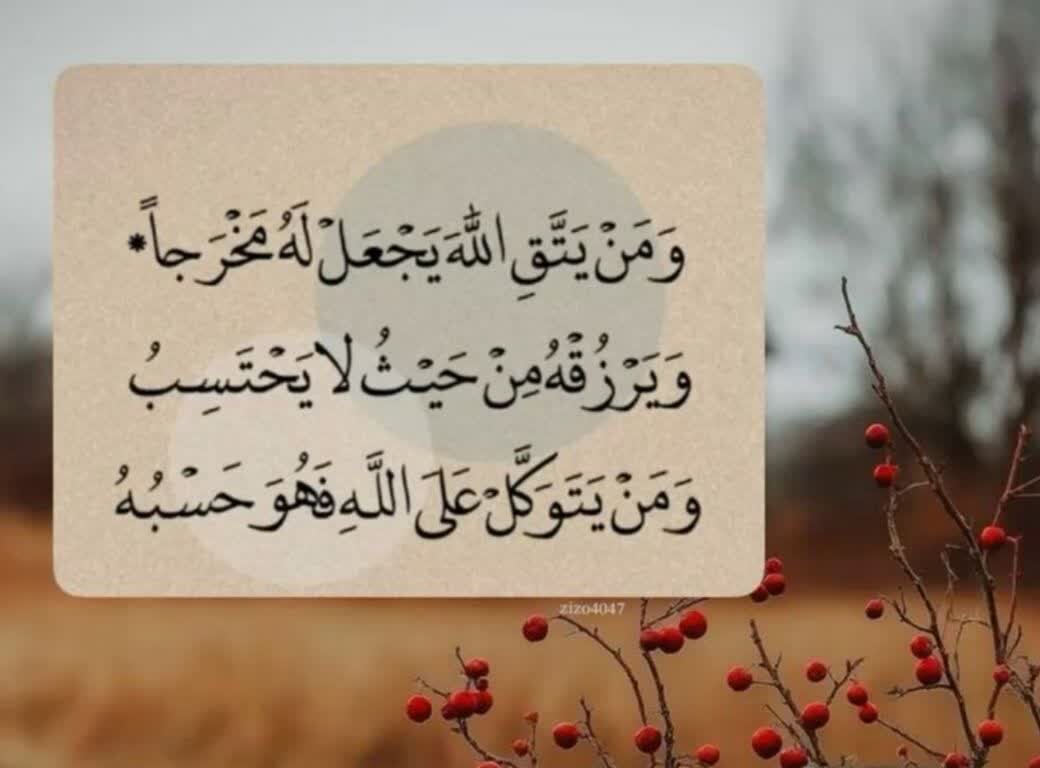 وَمَنْ يَتَّقِ اللَّهَ يَجْعَلْ لَهُ مَخْرَجاً *
وَيَرْزُقْهُ مِنْ حَيْثُ لا يَحْتَسِبُ
وَمَنْ يَتَوَكَّلْ عَلَى اللَّهِ فَهُوَ حَسْبُهُ
zizo4047